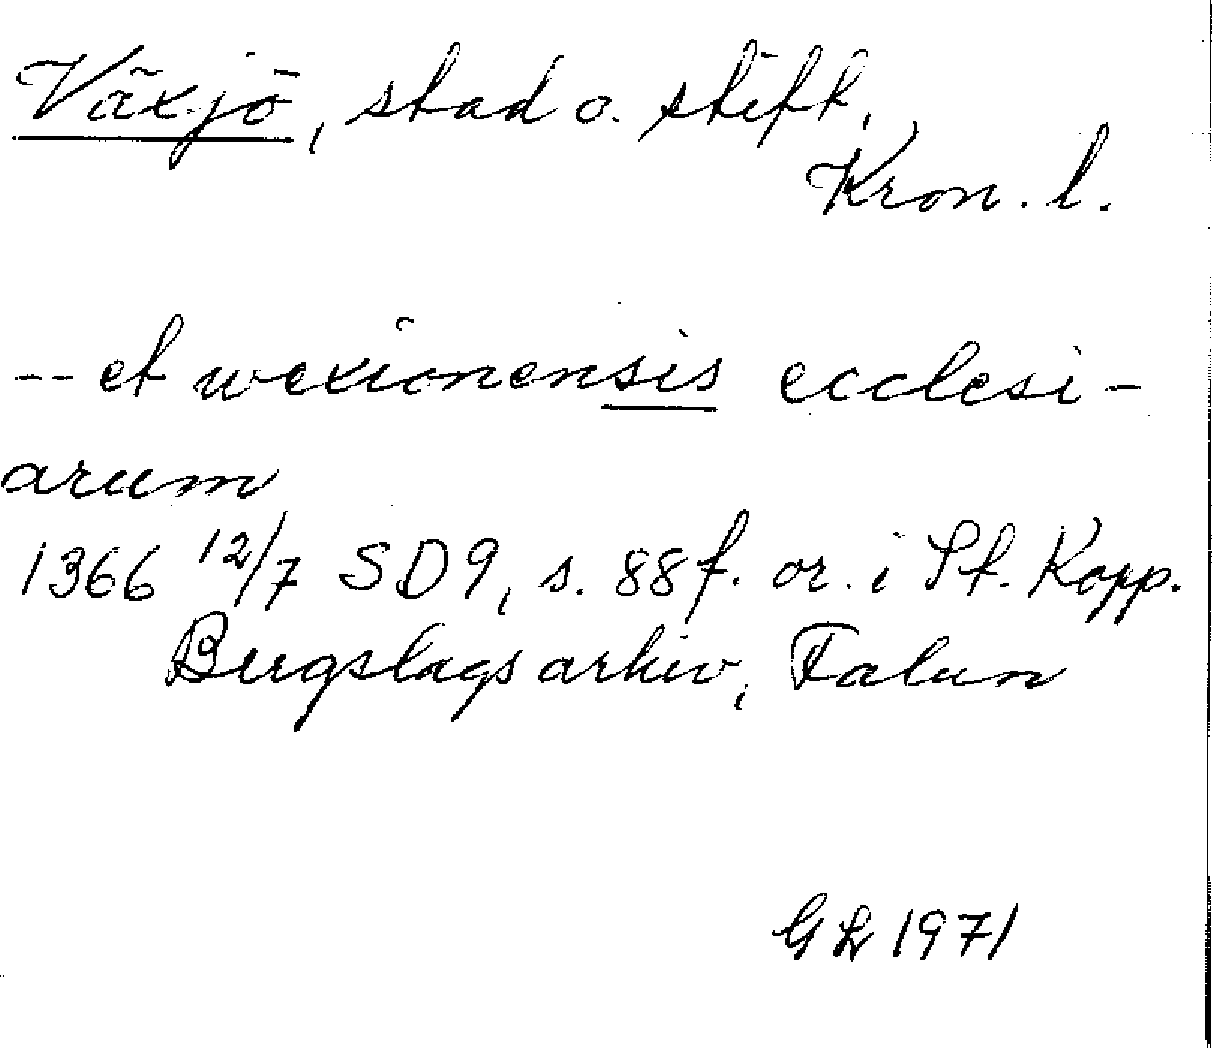 Växjö, stad o. stift,
Kron. l.
-- et wexionensis ecclesi-
arum
1366 12/7 SD9, s. 88 f. or. i St. Kopp.
Bergslags arkiv, Falun
GL 1971